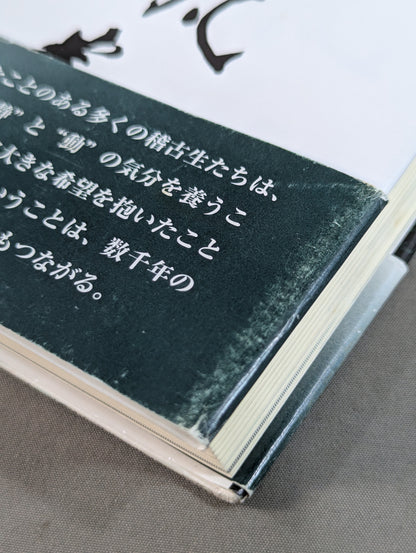 たことのある多くの稽古生たちは、
静”と“動”の気分を養うこ
大きな希望を抱いたこと
いうことは、数千年の
もつながる。